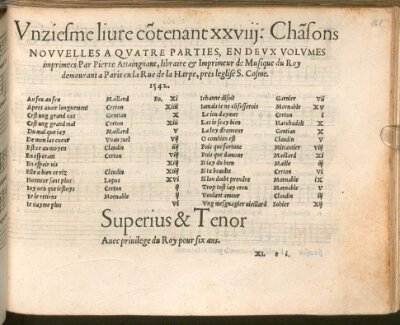 Vnziesme liure cõtenant xxviij: Chãsons
NOVVELLES A QVATRE PARTIES, EN DEVX VOLVMES
imprimees Par Pierre Attaingnant, libraire & Imprimeur de Musique du Roy
demourant a Paris en la Rue de la Harpe, pres leglise S. Cosme.
1542.
Au feu au feu Maillard Fo. XI Jehanne disoit Garnier VII
Apres avoir longuement Certon XIII Jamais ie ne cõfesserois Mornable XV
Cest ung grand cas Gentian X Le ieu daymer Certon I
Cest ung grand mal Certon XIII Las ie scay bien Harchadelt X
Du mal que iay Maillard V La loy dhonneur Gentian X
De mon las cueur II O combien est Claudin
Est ce au moyen Claudin iij Puis que fortune Mittantier VIII
En esperant Certon VI Puis que damour Maillard XI
En espoir vis XIII Si iay du bien Maille iij
Elle a bien ce riz Claudin XIII Si ta beaulte Certon VI
Honneur sans plus Lupus XVI Si lon doibt prendre Mornable IX
Iay veu que iestoys Certon ij Trop tost iay creu Mornable V
Te le retiens Mornable ij Vivant amour Claudin iij
Te nayme plus VI Vng mesnagier vieillard Sohier XII
Superius & Tenor
Auec priuilege du Roy pour six ans.
XI. s i.